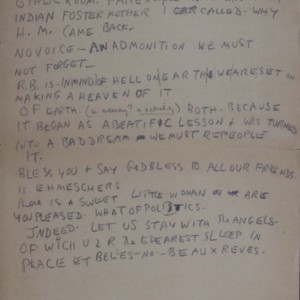 OTHER ROOM.
INDIAN FOSTER MOTHER I CALLED - WHY
H. M. CAME BACK.
NO VOICE - AN ADMONITION WE MUST
NOT FORGET -
R.B. IS - IN MIND OF HELL ON/EARTH/WE ARE SET ON
MAKING A HEAVEN OF IT
OF EARTH. BOTH. BECAUSE
IT BEGAN AS A BEATIFIC LESSON & WAS TURNED
INTO A BAD DREAM - WE MUST REPEOPLE
IT.
BLESS YOU & SAY GOD BLESS TO ALL OUR FRIENDS
IS EHMESCHERS
THERE IS A SWEET LITTLE WOMAN ARE
YOU PLEASED. WHAT OF POLITICS.
INDEED. LET US STAY WITH THE ANGELS.
OF WICH U 2 R THE DEAREST SLEEP IN
PEACE ET BELES - NO - BEAUX REVES.